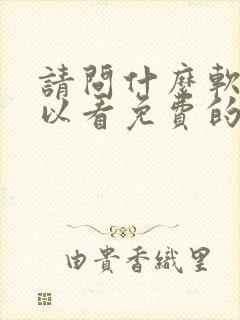 請問什麼軟
以看免費的
由貴香織里